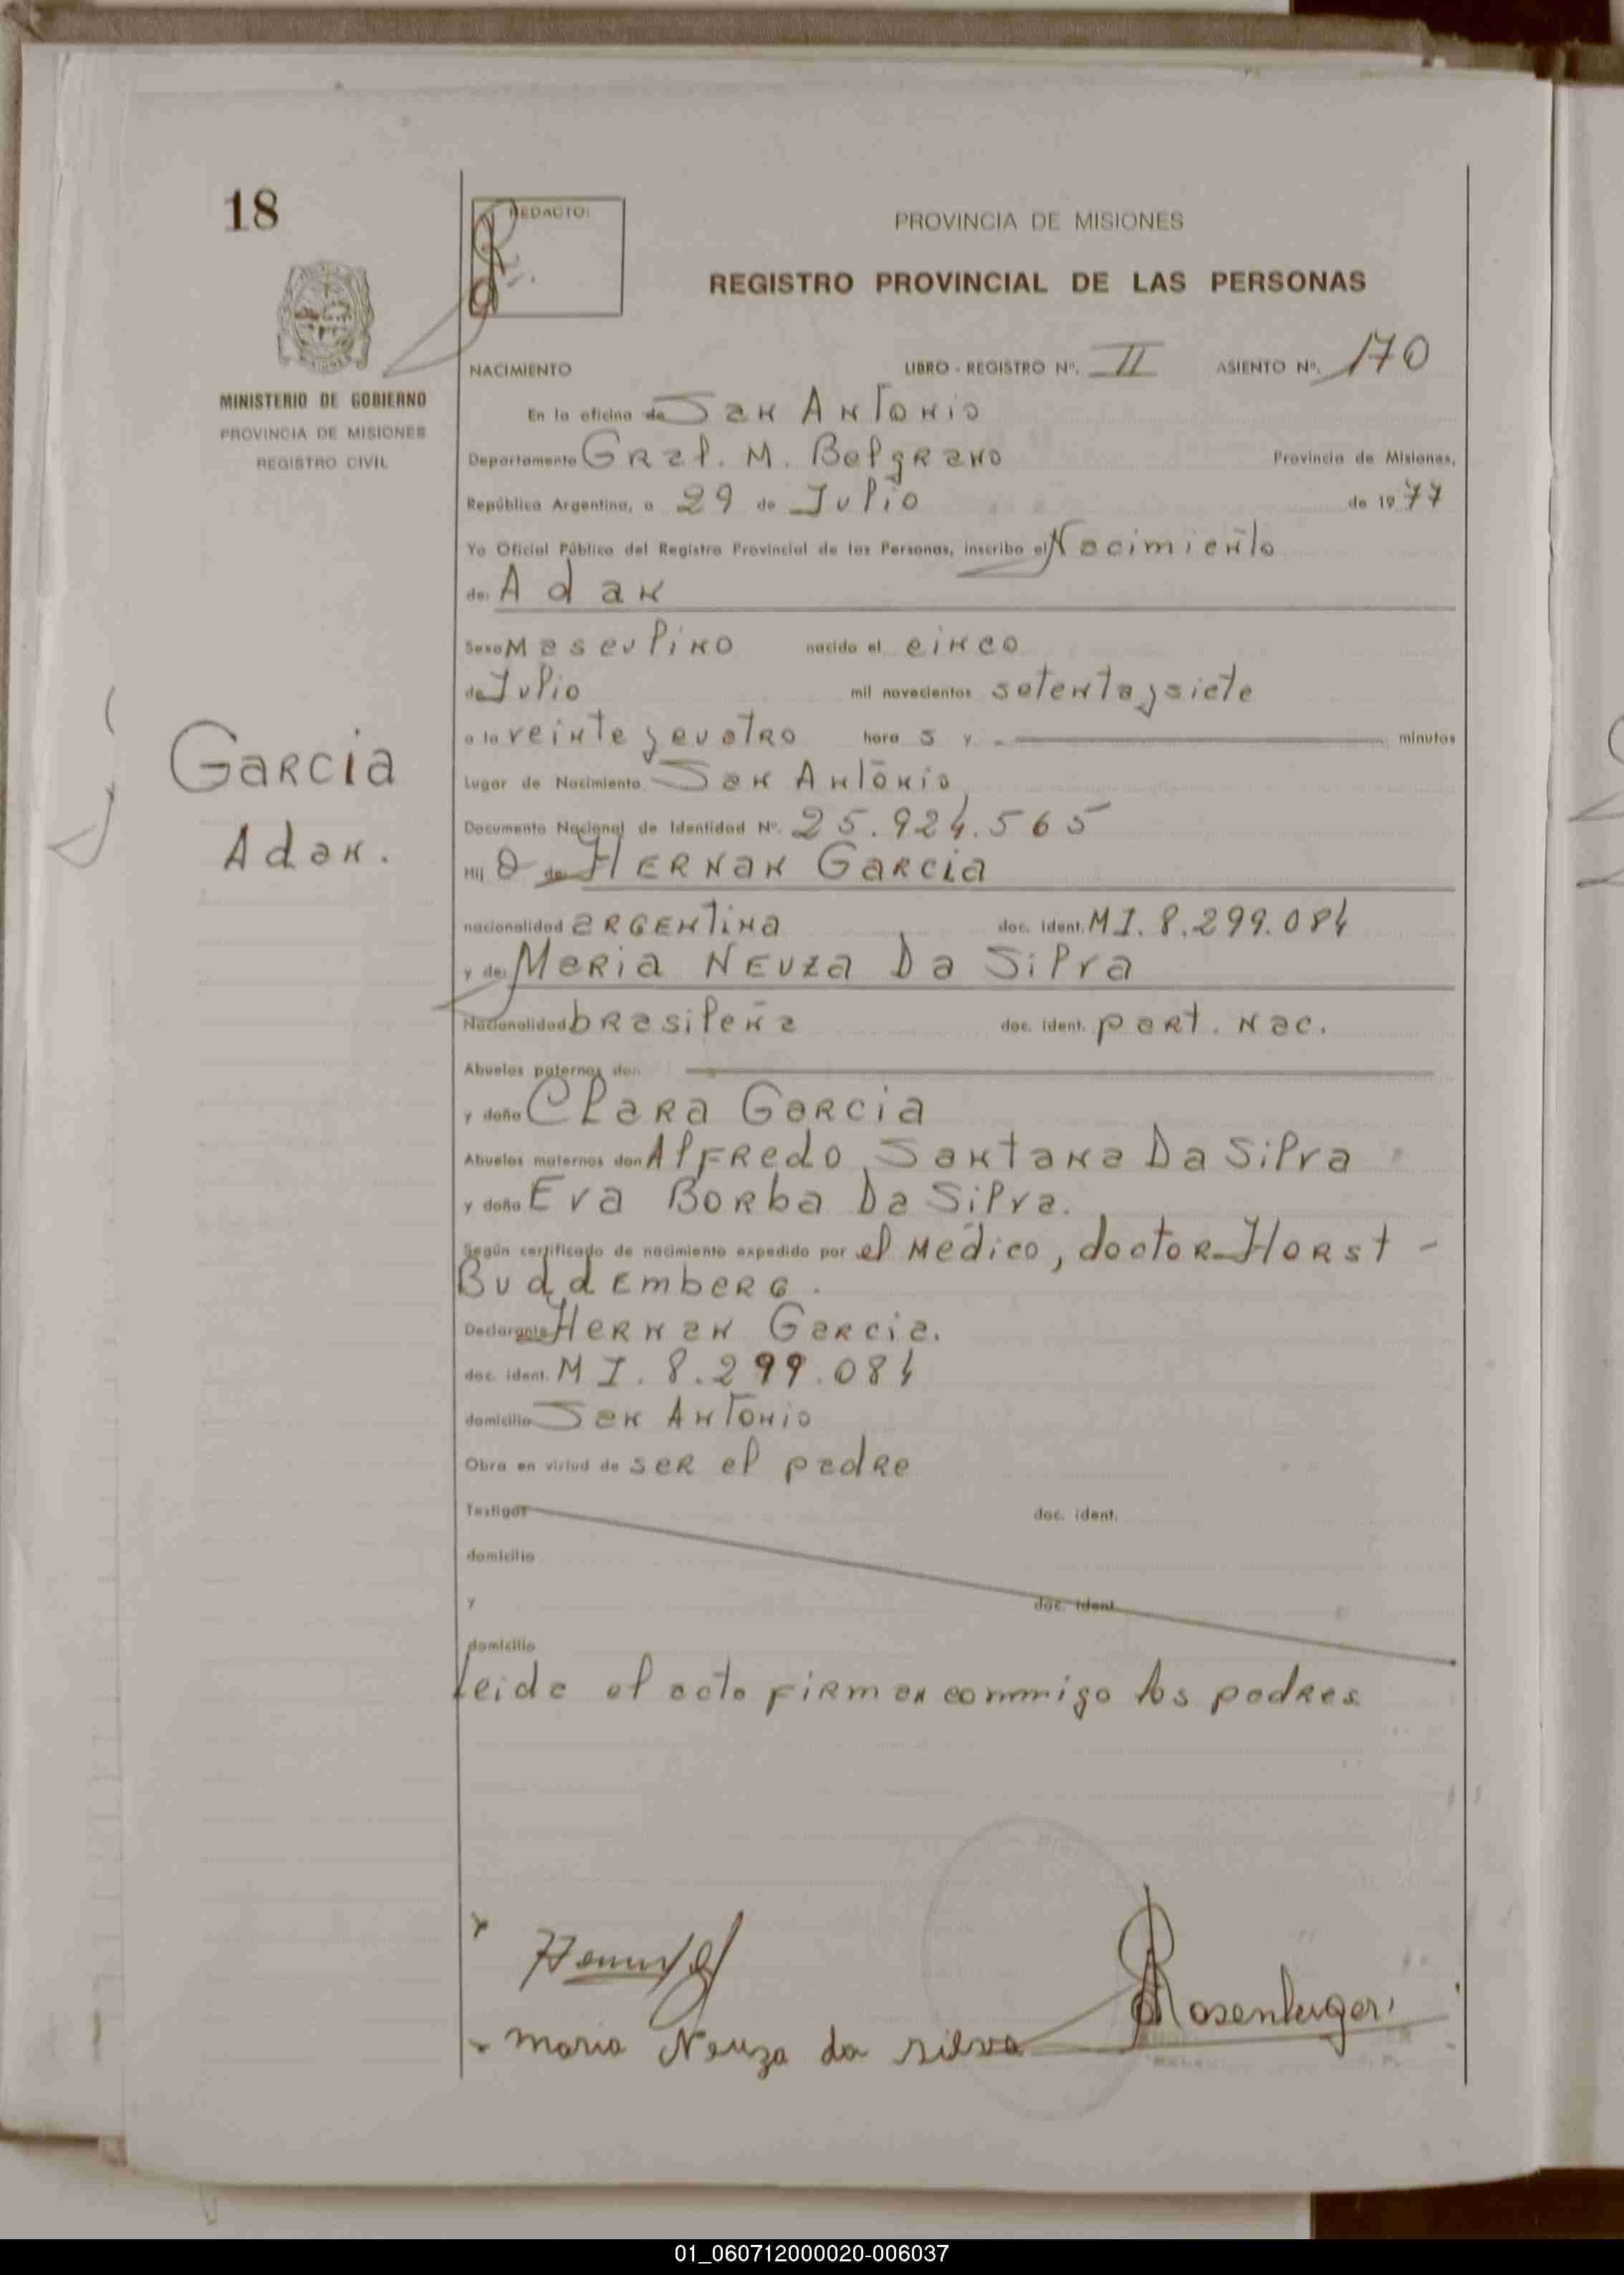 18
REDACTO:
PROVINCIA DE MISIONES
REGISTRO PROVINCIAL DE LAS PERSONAS
MINISTERIO DE GOBIERNO
PROVINCIA DE MISIONES
REGISTRO CIVIL
NACIMIENTO LIBRO - REGISTRO Nº. II ASIENTO Nº. 170
En la oficina de San Antonio
Departamento Gral. M. Belgrano Provincia de Misiones,
República Argentina, a 29 de Julio de 1977
Yo Oficial Público del Registro Provincial de las Personas, inscribo el Nacimiento
de: Adan
Sexo Masculino nacido el cinco
de Julio mil novecientos setenta y siete
a la veinte y cuatro hora s y - minutos
Garcia
Adan.
Lugar de Nacimiento San Antonio
Documento Nacional de Identidad Nº. 25.924.565
Hij o de Hernan Garcia
nacionalidad argentina doc. ident. M I. 8.299.084
y de: Maria Neuza Da Silva
Nacionalidad brasileña doc. ident. part. Nac.
Abuelos paternos don
y doña Clara Garcia
Abuelos maternos don Alfredo Santana Da Silva
y doña Eva Borba Da Silva.
Según certificado de nacimiento expedido por el Medico, doctor Horst -
Buddemberg.
Declarante Hernan Garcia.
doc. ident. M I. 8.299.084
domicilio San Antonio
Obra en virtud de ser el padre
Testigos doc. ident.
domicilio
y doc. ident.
domicilio
Leida el acta firman conmigo los padres
maria Neuza da silva
01_060712000020-006037